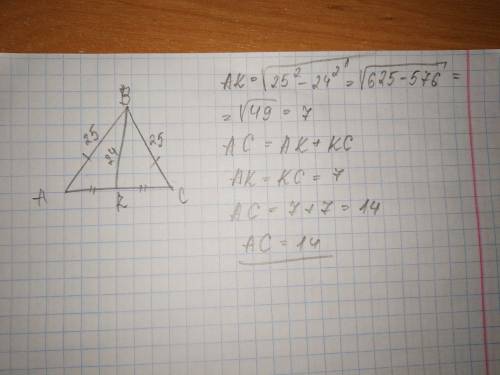 B
25
24
25
A
K
C
AK = √25² - 24² = √625 - 576 =
= √49 = 7
AC = AK + KC
AK = KC = 7
AC = 7 + 7 = 14
AC = 14